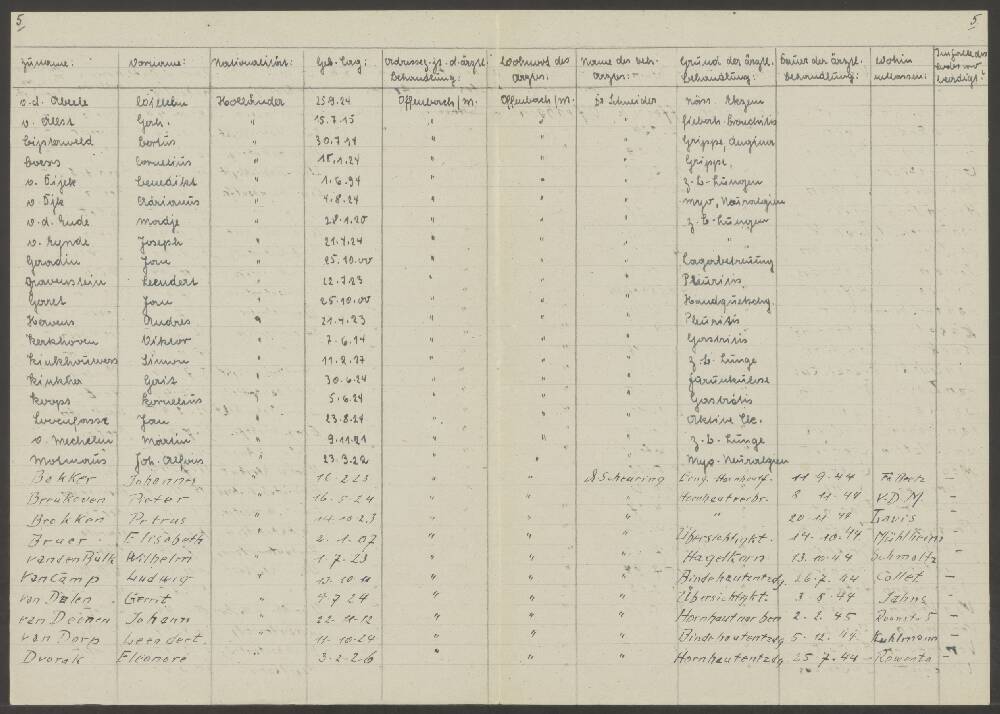 5 5
Zuname: Vorname: Nationalität: Geb. Tag: Adresse z. Zt. d. ärztl. Behandlung: Wohnort des Arztes: Name des beh. Arztes: Grund der ärztl. Behandlung: Dauer der ärztl. Behandlung: Wohin entlassen:
v.d. Abele Wilhelm Holländer 25.9.24 Offenbach/M. Offenbach/M. Dr Schneider näss. Ekzem
v. Aelst Gerh. " 15.7.15 " " " fieberh. Bronchitis
Bijsterveld Bertus " 30.7.14 " " " Grippe, Angina
Cornelius " 18.1.24 " " " Grippe,
v. Dijck Benedikt " 1.6.94 " " " z. B. Lungen
v. Dijk Adrianus " 4.8.24 " " " Myo, Neuralgien
v.d. Ende " 28.1.20 " " " z. B. Lungen
v. Eynde Joseph " 21.4.24 " " " "
Gerardin Jan " 25.10.00 " " " Lagerbetreuung
Gravenstein Leendert " 22.7.23 " " " Pleuritis
Gerret Jan " 25.10.00 " " " Handquetschg.
Hervens Andres " 21.4.23 " " " Pleuritis
Kerkhoven Viktor " 7.6.14 " " " Gastritis
Simon " 11.2.27 " " " z. B. Lunge
Klinkher Gerit " 30.6.24 " " " Furunkulose
Koops Kornelius " 5.6.24 " " " Gastritis
Jan " 23.8.24 " " " Aktive tbc.
v. Mechelen Martin " 9.11.21 " " " z. B. Lunge
Joh. Alfons " 23.9.22 " " " Myo-Neuralgien
Bakker Johannes " 16.2.23 " " D. Scheuring 11.9.44 -
Breukoven Peter " 16.5.24 " " " Hornhautverbr. 8 11.44 V.D.M. -
Brokken Petrus " 14.10.23 " " " " 20 11 44 -
Bruer Elisabeth " 2.1.07 " " " Übersichtigkt. 14.10.44 Mühlheim -
van den Bulk Wilhelm " 1.7.23 " " " Hagelkorn 13.10.44 Schmaltz -
Van Camp Ludwig " 13.10.11 " " " Bindehautentzdg. 26.7.44 Collet -
van Dalen Gerrit " 4.7.24 " " " Übersichtigkt 3 8.44 Jahns -
van Deenen Johann " 22.11.12 " " " Hornhautnarben 2.2.45 -
van Dorp Leendert. " 11.10.24 " " " Bindehautentzdg 5.12.44 Kuhlmann -
Dvorak Eleonore 3.2.26 " " " Hornhautentzdg. 25 7.44 Rowenta -